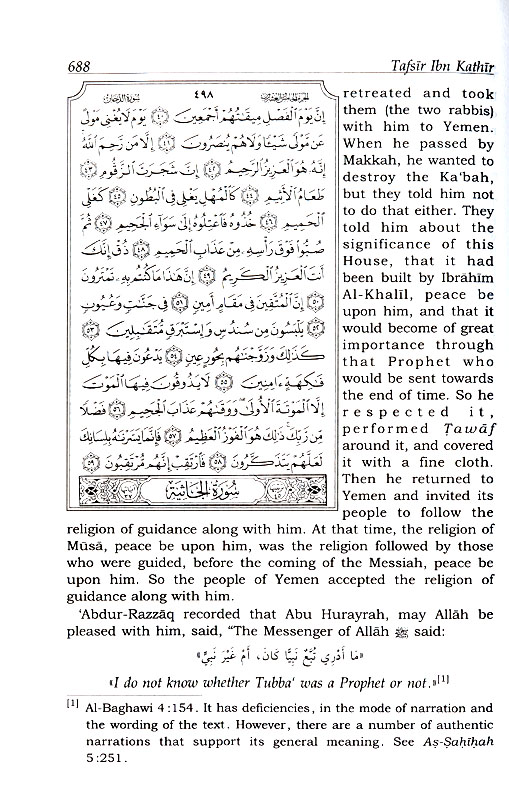 688
Tafsīr Ibn Kathīr
سورة الدخان
٤٩٨
الجزء الخامس والعشرون
إِنَّ يَوْمَ ٱلْفَصْلِ مِيقَٰتُهُمْ أَجْمَعِينَ ٤٠ يَوْمَ لَا يُغْنِى مَوْلًى
عَن مَّوْلًى شَيْـًٔا وَلَا هُمْ يُنصَرُونَ ٤١ إِلَّا مَن رَّحِمَ ٱللَّهُ
إِنَّهُۥ هُوَ ٱلْعَزِيزُ ٱلرَّحِيمُ ٤٢ إِنَّ شَجَرَتَ ٱلزَّقُّومِ ٤٣
طَعَامُ ٱلْأَثِيمِ ٤٤ كَٱلْمُهْلِ يَغْلِى فِى ٱلْبُطُونِ ٤٥ كَغَلْىِ
ٱلْحَمِيمِ ٤٦ خُذُوهُ فَٱعْتِلُوهُ إِلَىٰ سَوَآءِ ٱلْجَحِيمِ ٤٧ ثُمَّ
صُبُّوا۟ فَوْقَ رَأْسِهِۦ مِنْ عَذَابِ ٱلْحَمِيمِ ٤٨ ذُقْ إِنَّكَ
أَنتَ ٱلْعَزِيزُ ٱلْكَرِيمُ ٤٩ إِنَّ هَٰذَا مَا كُنتُم بِهِۦ تَمْتَرُونَ
٥٠ إِنَّ ٱلْمُتَّقِينَ فِى مَقَامٍ أَمِينٍ ٥١ فِى جَنَّٰتٍ وَعُيُونٍ
٥٢ يَلْبَسُونَ مِن سُندُسٍ وَإِسْتَبْرَقٍ مُّتَقَٰبِلِينَ ٥٣
كَذَٰلِكَ وَزَوَّجْنَٰهُم بِحُورٍ عِينٍ ٥٤ يَدْعُونَ فِيهَا بِكُلِّ
فَٰكِهَةٍ ءَامِنِينَ ٥٥ لَا يَذُوقُونَ فِيهَا ٱلْمَوْتَ
إِلَّا ٱلْمَوْتَةَ ٱلْأُولَىٰ وَوَقَىٰهُمْ عَذَابَ ٱلْجَحِيمِ ٥٦ فَضْلًا
مِّن رَّبِّكَ ذَٰلِكَ هُوَ ٱلْفَوْزُ ٱلْعَظِيمُ ٥٧ فَإِنَّمَا يَسَّرْنَٰهُ بِلِسَانِكَ
لَعَلَّهُمْ يَتَذَكَّرُونَ ٥٨ فَٱرْتَقِبْ إِنَّهُم مُّرْتَقِبُونَ ٥٩
سُورَةُ الجَاثِيَةِ
retreated and took
them (the two rabbis)
with him to Yemen.
When he passed by
Makkah, he wanted to
destroy the Ka'bah,
but they told him not
to do that either. They
told him about the
significance of this
House, that it had
been built by Ibrāhīm
Al-Khalīl, peace be
upon him, and that it
would become of great
importance through
that Prophet who
would be sent towards
the end of time. So he
respected it,
performed Ṭawāf
around it, and covered
it with a fine cloth.
Then he returned to
Yemen and invited its
people to follow the
religion of guidance along with him. At that time, the religion of
Mūsā, peace be upon him, was the religion followed by those
who were guided, before the coming of the Messiah, peace be
upon him. So the people of Yemen accepted the religion of
guidance along with him.
'Abdur-Razzāq recorded that Abu Hurayrah, may Allāh be
pleased with him, said, “The Messenger of Allāh ﷺ said:
«مَا أَدْرِي تُبَّعٌ نَبِيًّا كَانَ، أَمْ غَيْرَ نَبِيٍّ»
«I do not know whether Tubba' was a Prophet or not.»[1]
[1] Al-Baghawi 4:154. It has deficiencies, in the mode of narration and
the wording of the text. However, there are a number of authentic
narrations that support its general meaning. See Aṣ-Ṣaḥīḥah
5:251.